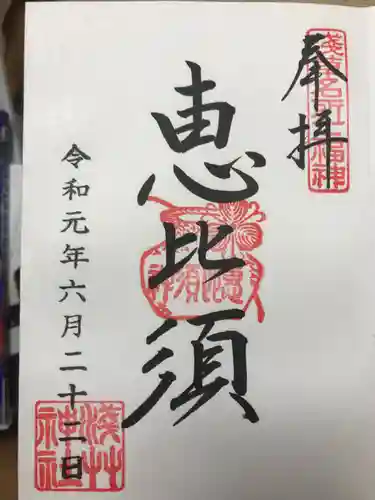 奉拝
浅草名所七福神
恵比須
恵比須神
令和元年六月二十二日
浅草神社